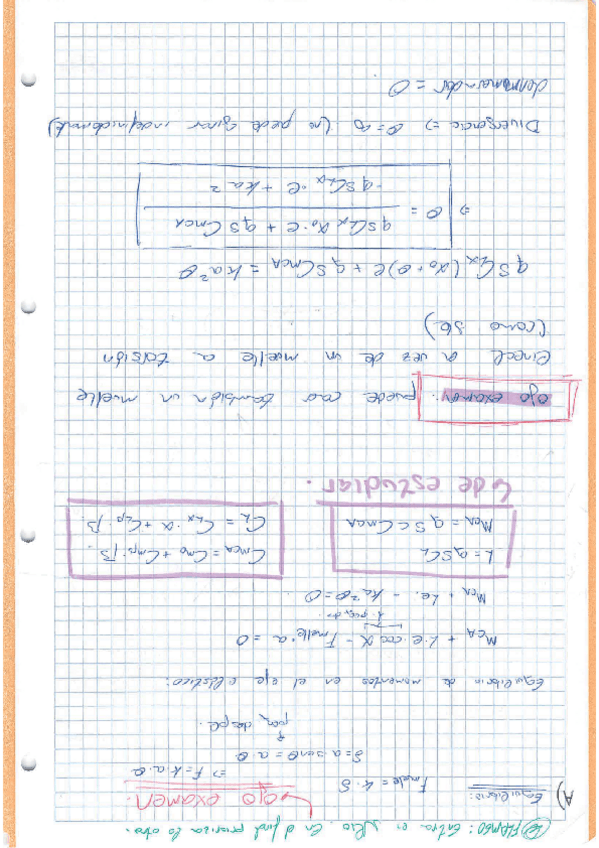 FLAMEO: entra en
A) Equilibrio:
→ ojo examen.
Fmuelle = k·δ
δ = a senθ = a·θ ⇒ F = k·a·θ
peq despl.
Equilibrio de momentos en el eje elástico:
MCA + L·e·cos α - Fmuelle·a = 0
MCA + Le - ka²θ = 0.
L = qSCL
MCA = qScCmCA
CmCA = Cm0 + Cmβ·β.
CL = CLα·α + CLβ·β.
↳ de estudiar.
ojo examen. puede caer también un muelle
lineal a vez de un muelle a torsión
(como se)
qSCLα(α0+θ)e + qSCmCA = ka²θ
⇒ θ = qSCLα α0·e + qSCmCA
-qSCLα·e + ka²
Divergencia ⇒ θ=∞ (se puede girar indefinidamente)
denominador = 0